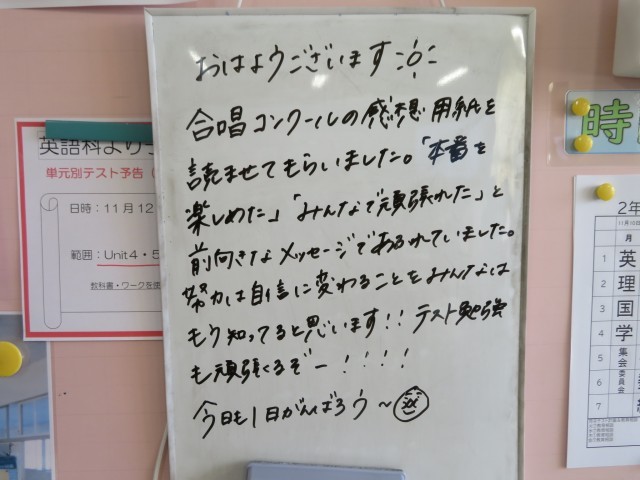 おはようございます
合唱コンクールの感想用紙を
読ませてもらいました。「本番を
楽しめた」「みんなで頑張れた」と
前向きなメッセージであふれていました。
努力は自信に変わることをみんなは
もう知ってると思います!! テスト勉強
も頑張るぞー!!!!
今日も1日がんばろう～
英語科より
単元別テスト予告
日時：11月12
範囲：Unit4・5
教科書・ワークを使
時
2年
月
1 英
2 理
3 国
4 学
5 集会
6 委員会
7